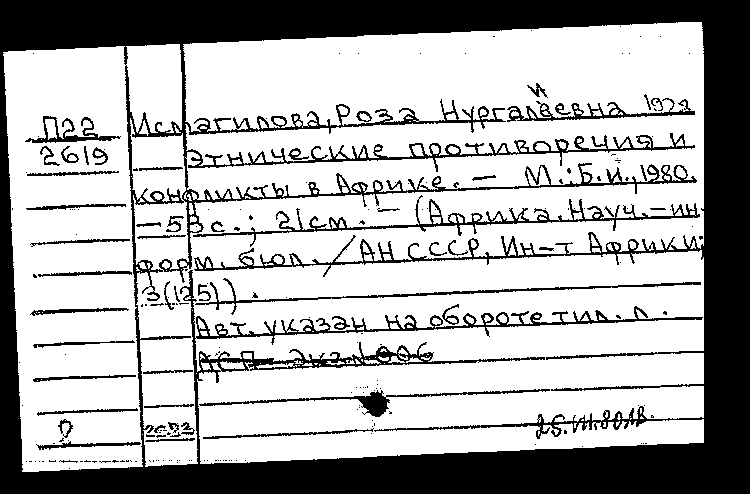 П22
2619
Исмагилова, Роза Нургалиевна
Этнические противоречия и
конфликты в Африке. — М.: Б.и., 1980.
— 53 с.; 21 см. — (Африка. Науч.-ин-
форм. бюл. / АН СССР, Ин-т Африки;
3(125)).
Авт. указан на обороте тит. л.
ДСП Экз N 006